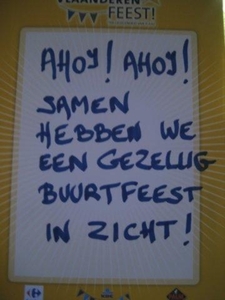 VLAANDEREN
FEEST!
AHOY! AHOY!
SAMEN
HEBBEN WE
EEN GEZELLIG
BUURTFEEST
IN ZICHT!